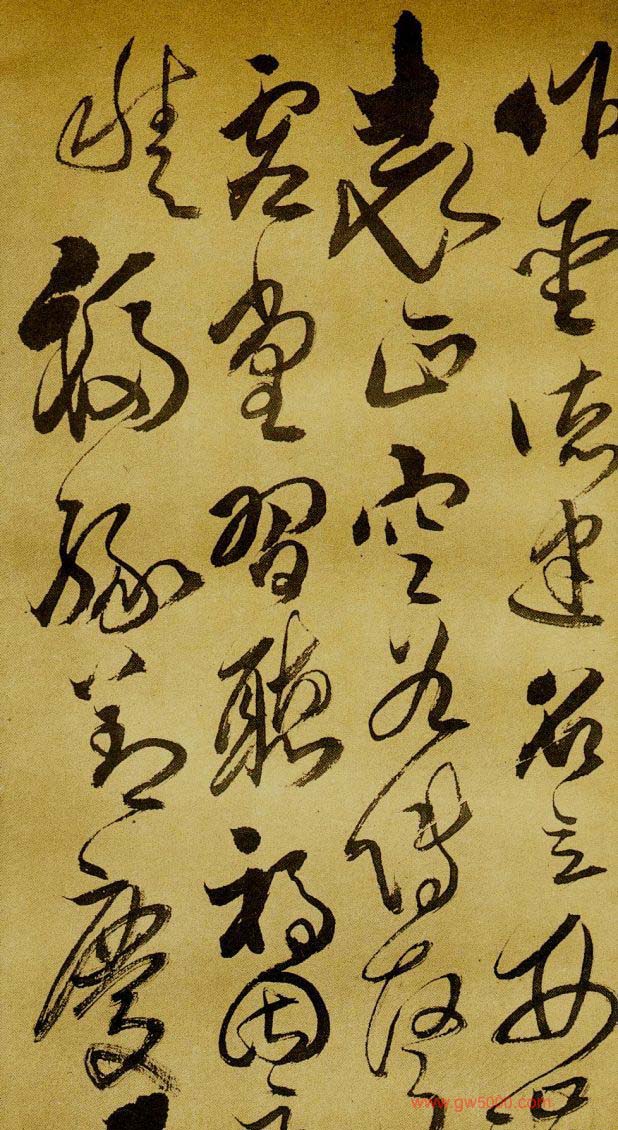 作聖德建名立形
表正空谷傳聲
虛堂習聽禍因
積福緣善慶
www.gw5000.com